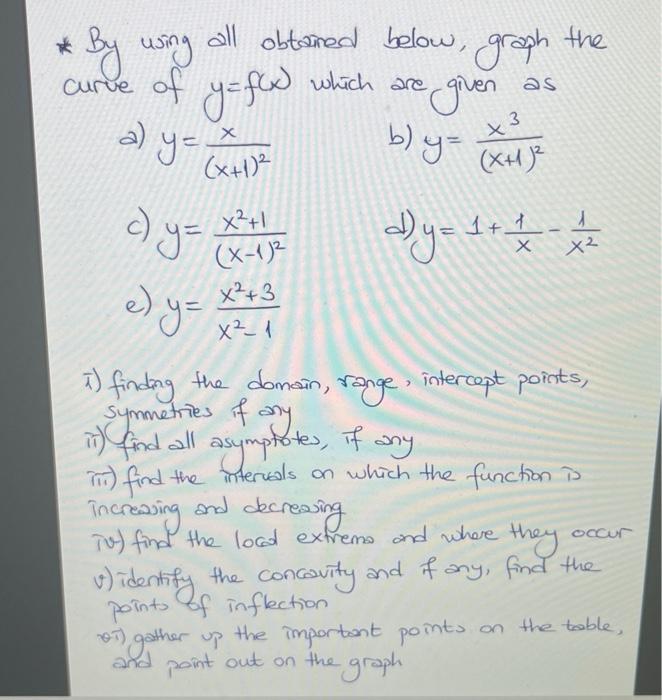 * By using all obtained below, graph the
curve of y=f(x) which are given as
a) y= x/(x+1)² b) y= x³/(x+1)²
c) y= x²+1/(x-1)² d) y= 1+1/x-1/x²
e) y= x²+3/x²-1
i) finding the domain, range, intercept points,
symmetries if any
ii) find all asymptotes, if any
iii) find the intervals on which the function is
increasing and decreasing
iv) find the local extrema and where they occur
v) identify the concavity and if any, find the
points of inflection
vi) gather up the important points on the table,
and point out on the graph